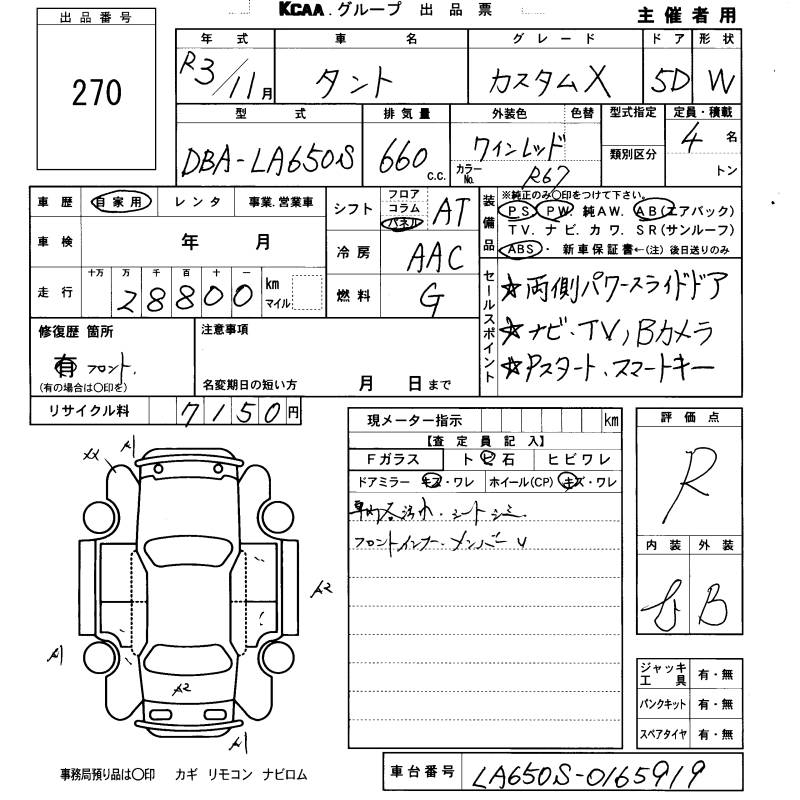 KCAA.グループ 出品票
主催者用
出品番号
270
年式 車名 グレード ドア 形状
R3/11月 タント カスタムX 5D W
型式 排気量 外装色 色替 型式指定 定員・積載
DBA-LA650S 660 c.c. ワインレッド 類別区分 4名
カラーNo. R67 トン
車歴 自家用 レンタ 事業.営業車
シフト フロア コラム パネル AT
車検 年 月
冷房 AAC
走行 十万 万 千 百 十 一
28800 km マイル
燃料 G
装備品
※純正のみ○印をつけて下さい。
PS PW. 純AW. AB(エアバック)
TV. ナビ. カワ. SR(サンルーフ)
ABS・ 新車保証書←(注) 後日送りのみ
セールスポイント
☆両側パワースライドドア
☆ナビ・TV, Bカメラ
☆Pスタート、スマートキー
修復歴 箇所
有 フロント.
(有の場合は○印を)
注意事項
名変期日の短い方 月 日まで
リサイクル料 7150円
現メーター指示 km
【査定員記入】
Fガラス ト ビ 石 ヒビワレ
ドアミラー キズ・ワレ ホイール(CP) キズ・ワレ
車内 汚れ.シートシミ.
フロントインナー.メンバー
評価点
R
内装 外装
B
XX A1
A2
A1
A2
A1
ジャッキ工具 有・無
パンクキット 有・無
スペアタイヤ 有・無
事務局預り品は○印 カギ リモコン ナビロム
車台番号 LA650S-0165919